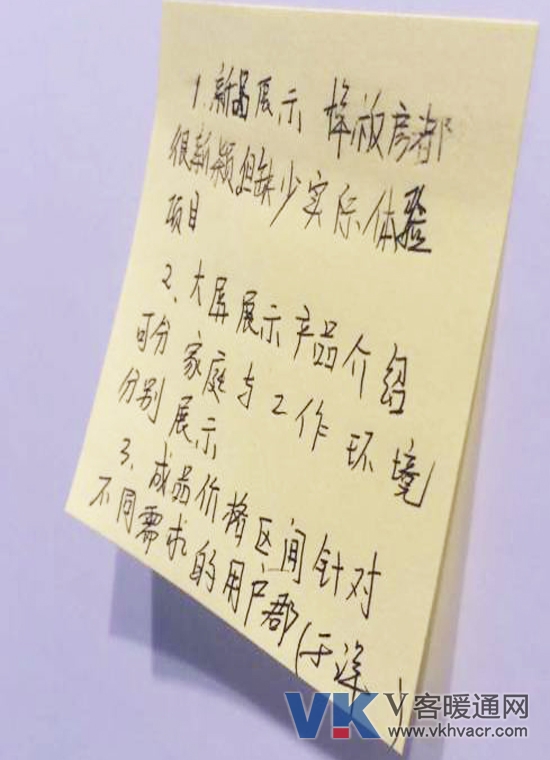 1.新品展示 样板房都
很新颖但缺少实际体验
项目
2、大屏展示产品介绍
可分家庭与工作环境
分别展示
3、成品价格区间针对
不同需求的用户郡(于深
VK V客暖通网
www.vkhvacr.com